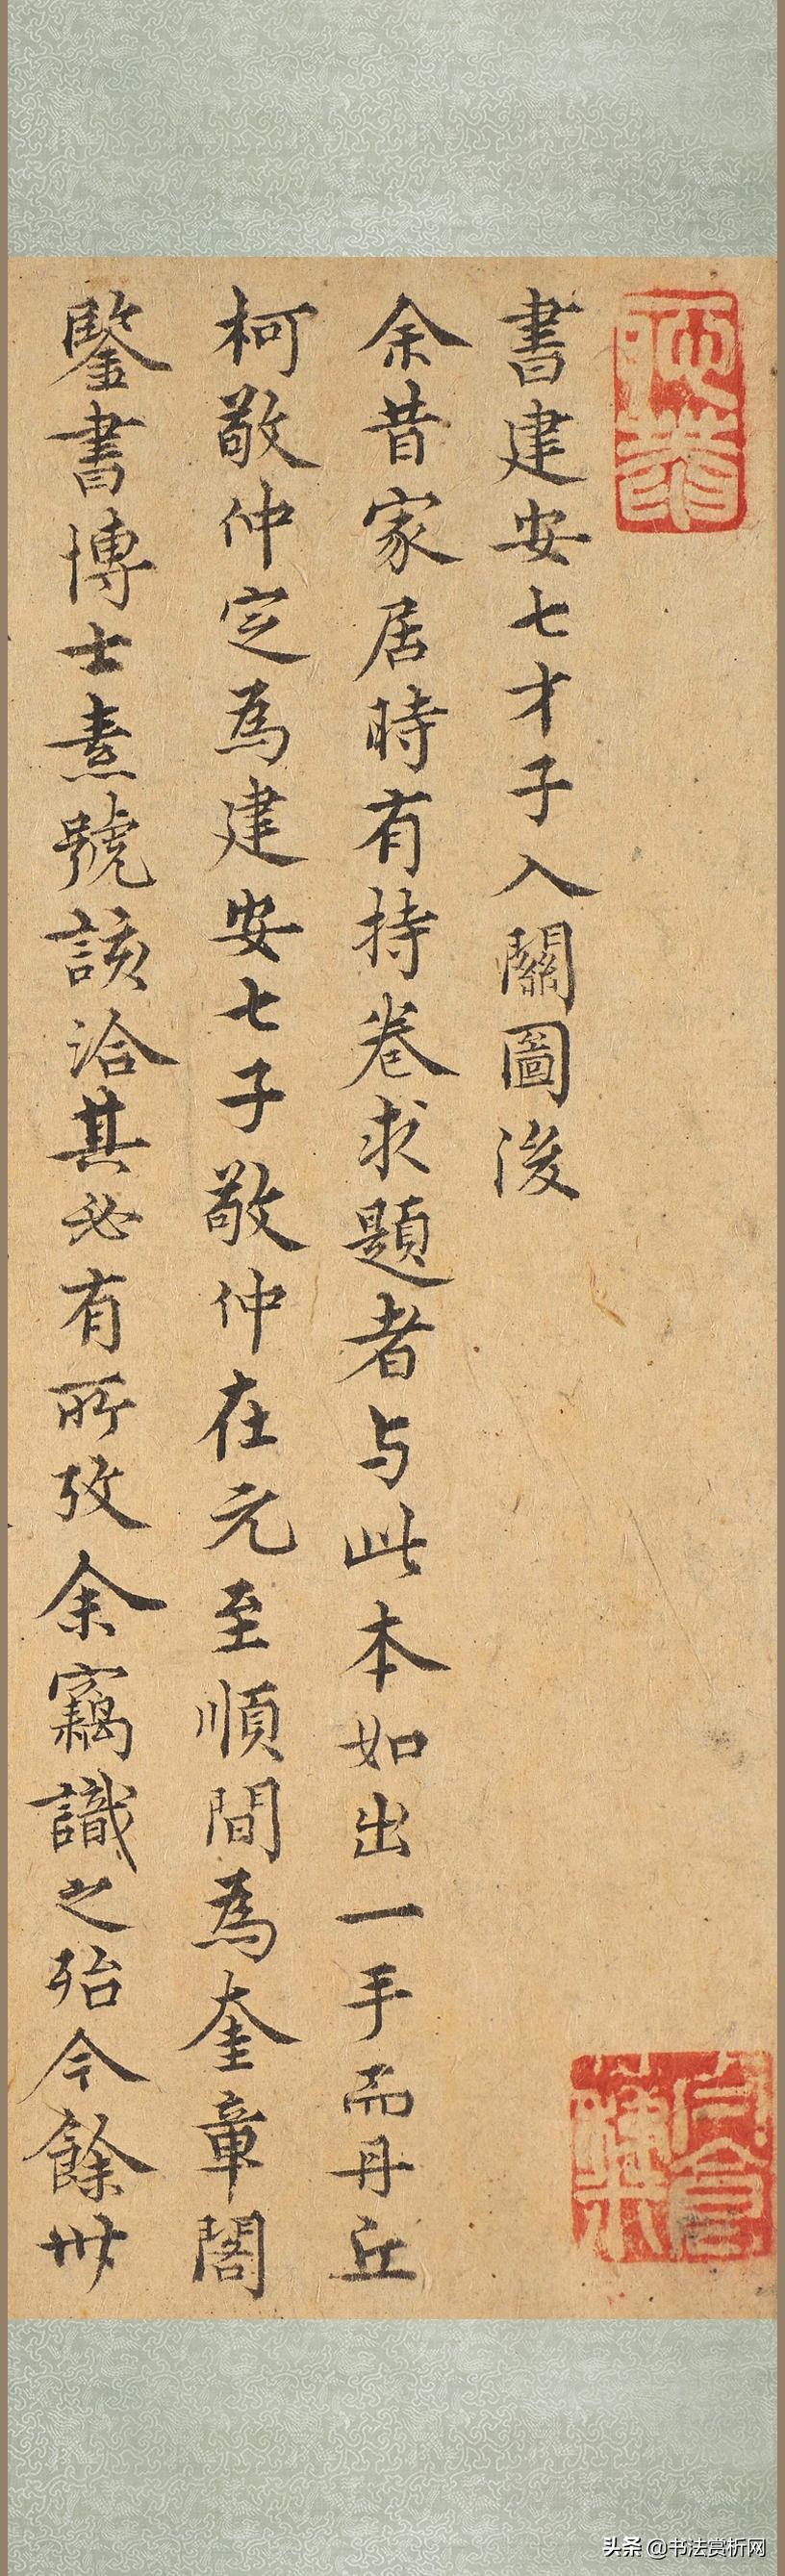 書建安七才子入關圖後
余昔家居時有持卷求題者与此本如出一手而丹丘
柯敬仲定為建安七子敬仲在元至順間為奎章閣
鑒書博士素號該洽其必有所攷余竊識之殆今餘卅
头条 @书法赏析网